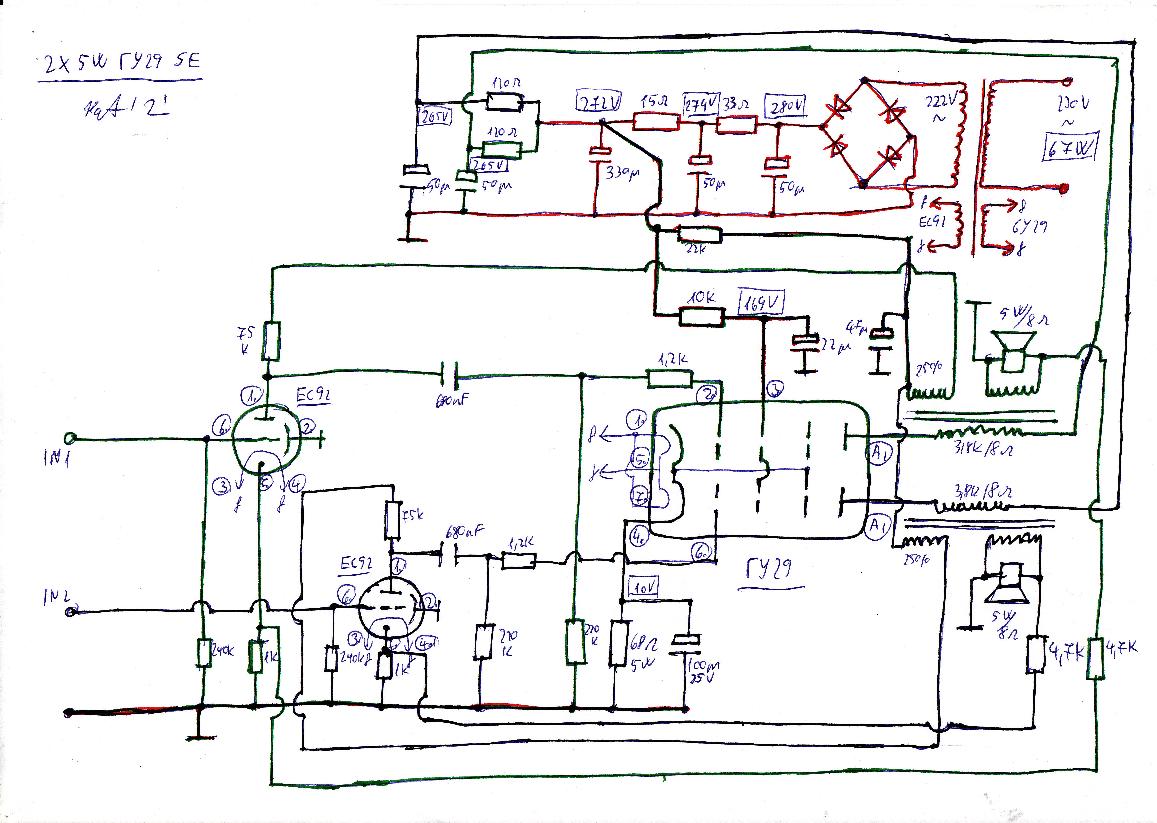 2X5W ГУ29 SE
120Ω
265V
120Ω
265V
50µ
50µ
272V
15Ω
274V
33Ω
280V
330µ
50µ
50µ
222V
~
230V
~
67W
f
EC92
f
f
GY29
f
22K
10K
169V
22µ
47µ
5W/8Ω
25%
75
K
1.
EC92
6.
2.
3
5
4
f
f
IN1
680nF
1,2K
2.
3
1.
5.
7.
4.
6.
f
f
A1
A1
3,8K/8Ω
3,8K/8Ω
25%
ГУ29
75K
680nF
1,2K
EC92
1.
6
2.
3
f
f
IN2
10V
240K
1K
240K
1K
270
K
270
K
68Ω
5W
100µ
25V
5W
8Ω
4,7K
4,7K